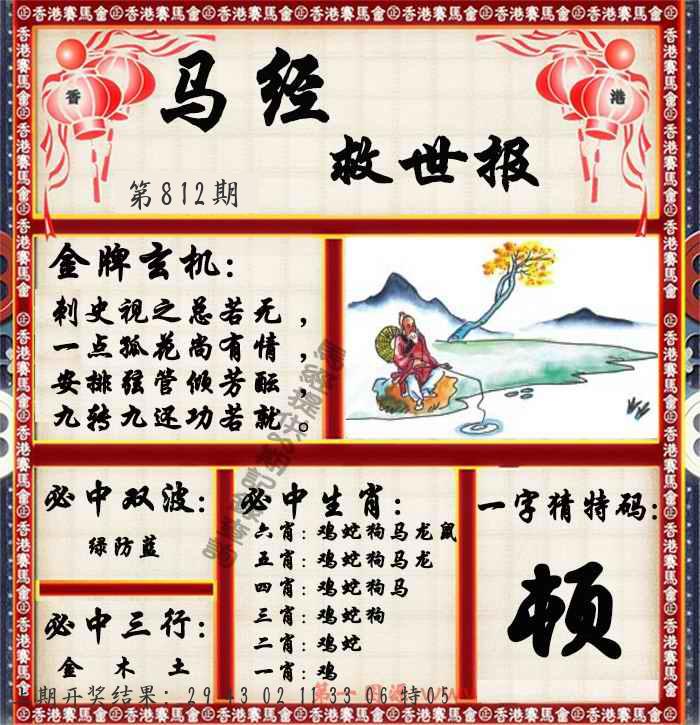 香港賽馬會
香 港
马经
救世报
第812期
金牌玄机:
刺史视之总若无，
一点孤花尚有情，
安排弦管倾芳酝，
九转九还功若就。
必中双波:
绿防蓝
必中三行:
金 木 土
必中生肖:
六肖: 鸡蛇狗马龙鼠
五肖: 鸡蛇狗马龙
四肖: 鸡蛇狗马
三肖: 鸡蛇狗
二肖: 鸡蛇
一肖: 鸡
一字猜特码:
顿
期开奖结果: 29 43 02 11 33 06 特05